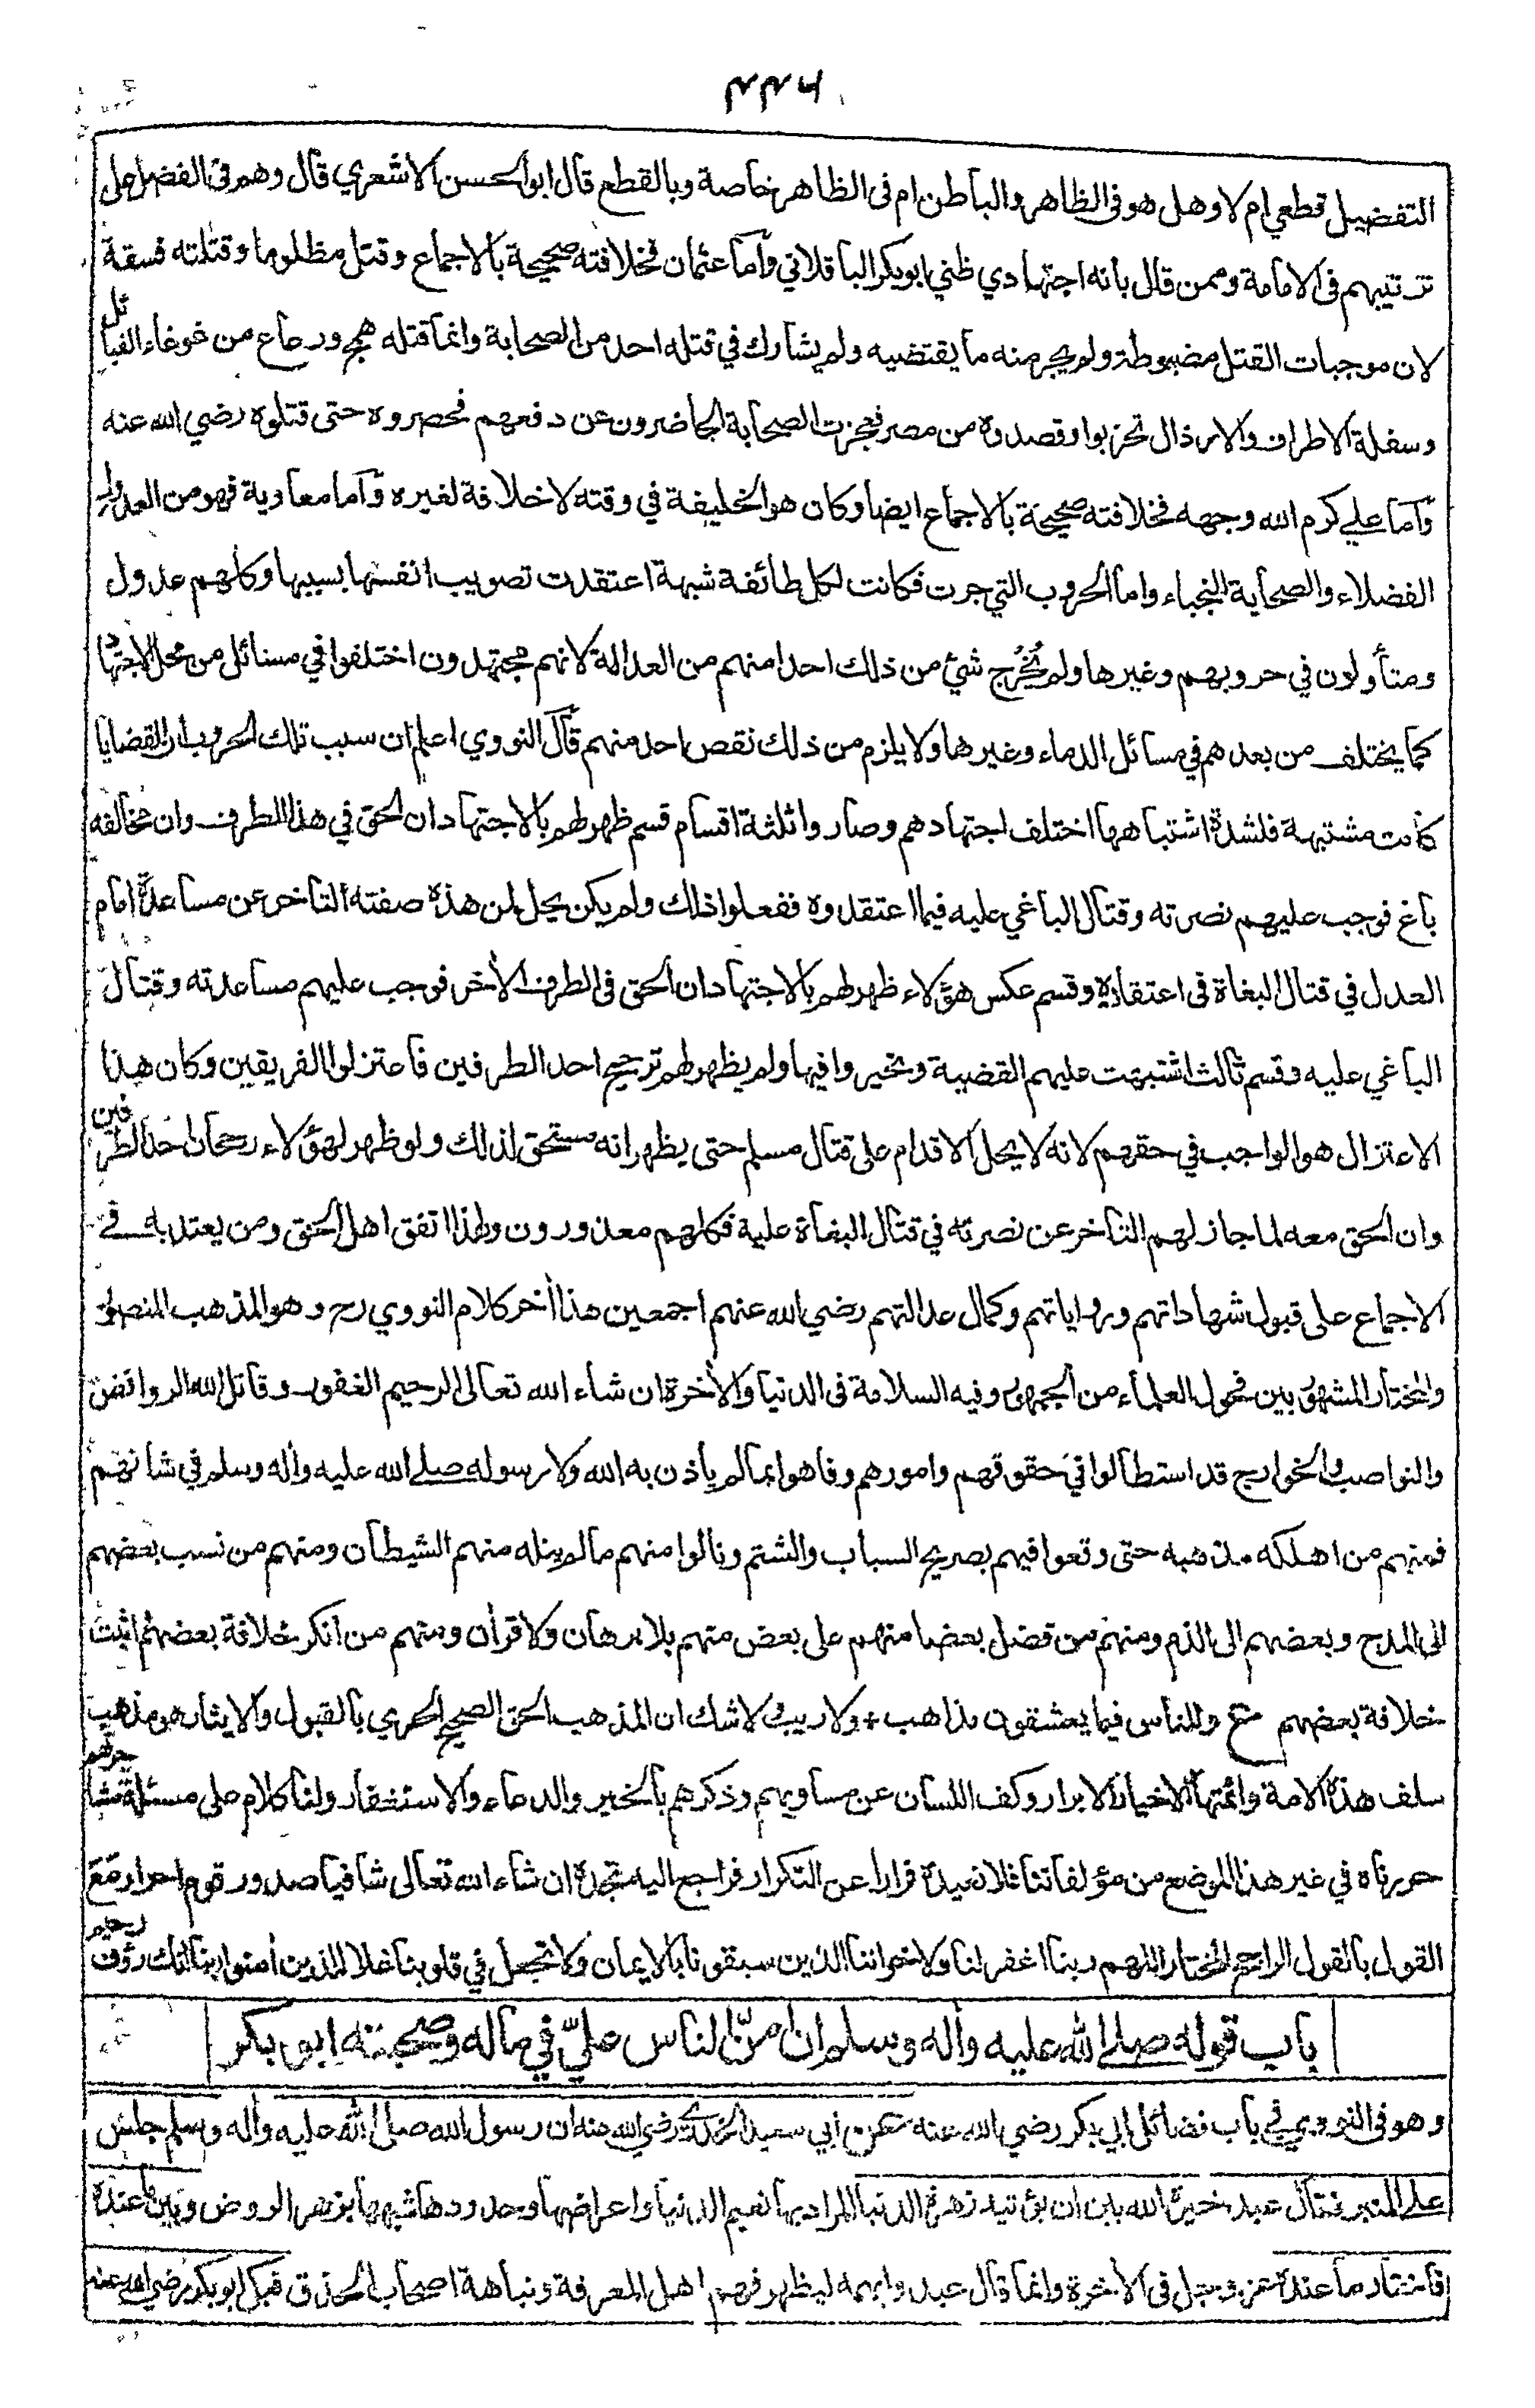 التفضيل قطعي ام لا وهل هو فى الظاهر والباطن ام فى الظاهر خاصة وبالقطع قال ابو الحسن الاشعري قال وهم فى الفضل على
ترتيبهم فى الامامة وممن قال بانه اجتهادي ظني ابو بكر الباقلاني وأما عثمان فخلافته صحيحة بالاجماع وقتل مظلوما وقتلته فسقة
لان موجبات القتل مضبوطة ولم يجر منه ما يقتضيه ولم يشارك في قتله احد من الصحابة وانما قتله همج ورعاع من غوغاء القبائل
وسفلة الاطراف والارذال تحزبوا وقصدوه من مصر فعجزت الصحابة الحاضرون عن دفعهم فحصروه حتى قتلوه رضي الله عنه
وأما علي كرم الله وجهه فخلافته صحيحة بالاجماع ايضا وكان هو الخليفة في وقته لا خلافة لغيره وأما معاوية فهو من العدول
الفضلاء والصحابة النجباء واما الحروب التي جرت فكانت لكل طائفة شبهة اعتقدت تصويب انفسها بسببها وكلهم عدول
ومتأولون في حروبهم وغيرها ولم يُخْرج شئ من ذلك احدا منهم من العدالة لانهم مجتهدون اختلفوا في مسائل من محل الاجتهاد
كما يختلف من بعدهم في مسائل الدماء وغيرها ولا يلزم من ذلك نقص احد منهم قال النووي اعلم ان سبب تلك الحروب ان القضايا
كانت مشتبهة فلشدة اشتباهها اختلف اجتهادهم وصاروا ثلثة اقسام قسم ظهر لهم بالاجتهاد ان الحق في هذا الطرف وان مخالفه
باغ فوجب عليهم نصرته وقتال الباغي عليه فيما اعتقدوه ففعلوا ذلك ولم يكن يحل لمن هذه صفته التأخر عن مساعدة امام
العدل في قتال البغاة فى اعتقاده وقسم عكس هؤلاء ظهر لهم بالاجتهاد ان الحق فى الطرف الأخر فوجب عليهم مساعدته وقتال
الباغي عليه وقسم ثالث اشتبهت عليهم القضية وتحيروا فيها ولم يظهر لهم ترجيح احد الطرفين فاعتزلوا الفريقين وكان هذا
الاعتزال هو الواجب في حقهم لانه لا يحل الاقدام على قتال مسلم حتى يظهر انه مستحق لذلك ولو ظهر لهؤلاء رجحان احد الطرفين
وان الحق معه لما جاز لهم التأخر عن نصرته في قتال البغاة عليه فكلهم معذورون ولهذا اتفق اهل الحق ومن يعتد به في
الاجماع على قبول شهاداتهم ورواياتهم وكمال عدالتهم رضي الله عنهم اجمعين هذا أخر كلام النووي رح وهو المذهب المنصور
والمختار المشهور بين فحول العلماء من الجمهور وفيه السلامة فى الدنيا والأخرة ان شاء الله تعالى الرحيم الغفور وقاتل الله الروافض
والنواصب والخوارج قد استطالوا في حقوقهم وامورهم وفاهوا بما لم يأذن به الله ولا رسوله صلے الله عليه وأله وسلم في شأنهم
فمنهم من اهلكه مذهبه حتى وقعوا فيهم بصريح السباب والشتم ونالوا منهم ما لم ينله منهم الشيطان ومنهم من نسب بعضهم
الى المدح وبعضهم الى الذم ومنهم من فضل بعضا منهم على بعض منهم بلا برهان ولا قرأن ومنهم من انكر خلافة بعضهم اثبت
خلافة بعضهم ع وللناس فيما يعشقون مذاهب + ولا ريب ولا شك ان المذهب الحق الصحيح الحري بالقبول والايثار هو مذهب
سلف هذه الامة وائمتها الاخيار الابرار وكف اللسان عن مساويهم وذكرهم بالخير والدعاء والاستغفار ولنا كلام على مسئلة مشاجرتهم
حررناه في غير هذا الموضع من مؤلفاتنا فلا نعيده فرارا عن التكرار فراجع اليه تجده ان شاء الله تعالى شافيا صدور قوم احرار مع
القول بالقول الراجح المختار اللهم ربنا اغفر لنا ولاخواننا الذين سبقونا بالايمان ولا تجعل في قلوبنا غلا للذين أمنوا ربنا انك رؤف رحيم
باب قوله صلے الله عليه وأله وسلم ان أمنّ الناس عليّ في ماله وصحبته ابو بكر
وهو فى النووي في باب فضائل ابي بكر رضي الله عنه عن أبي سعيد الخدري رضي الله عنه ان رسول الله صلے الله عليه وأله وسلم جلس
على المنبر فقال عبد خيره الله بين ان يؤتيه زهرة الدنيا المراد بها نعيم الدنيا واعراضها وحدودها شبهها بزهر الروض وبين ما عنده
فاختار ما عنده عز وجل فى الأخرة وانما قال عبد وابهمه ليظهر فهم اهل المعرفة ونباهة اصحاب الحذق فبكى ابو بكر رضي الله عنه